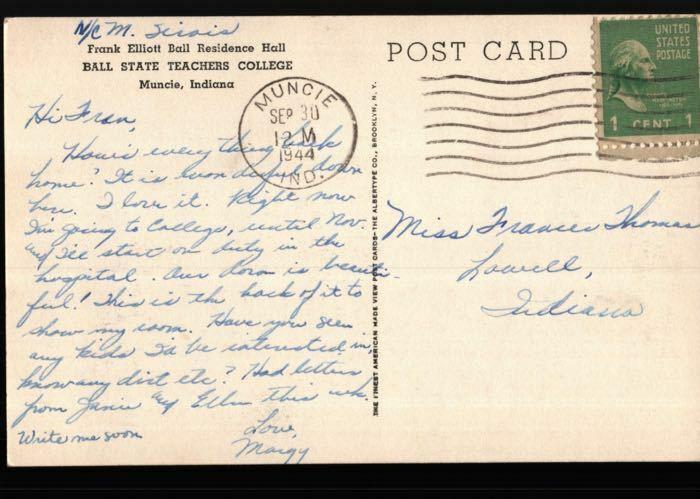 N/C M. Sirois
Frank Elliott Ball Residence Hall
BALL STATE TEACHERS COLLEGE
Muncie, Indiana
Hi Fran,
How's everything back
home? It is wonderful down
here. I love it. Right now
I'm going to College, until Nov.
and I'll start on duty in the
hospital. Our dorm is beauti-
ful! This is the back of it to
show my room. Have you seen
any kids I'd be interested in,
know any dirt etc? Had letters
from Janie and Ellen this wk.
Love,
Write me soon
Margy
MUNCIE
SEP 30
12 M
1944
IND.
POST CARD
UNITED
STATES
POSTAGE
1 CENT 1
THE FINEST AMERICAN MADE VIEW POST CARDS—THE ALBERTYPE CO., BROOKLYN, N. Y.
Miss Frances Thomas
Lowell,
Indiana